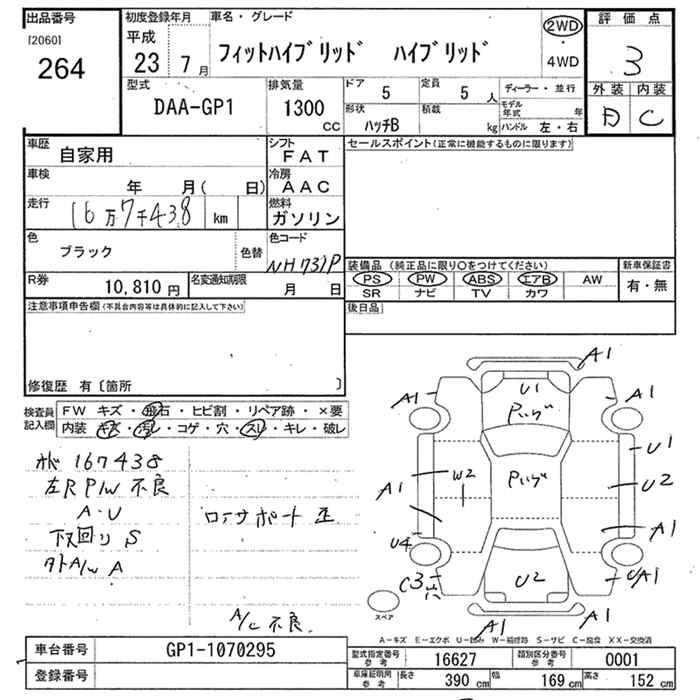 出品番号
[2060]
264
初度登録年月
平成
23 7 月
車名・グレード
フィットハイブリッド ハイブリッド
2WD
・
4WD
評価点
3
外装 内装
B C
型式
DAA-GP1
排気量
1300
CC
ドア
5
定員
5 人
形状
ハッチB
積載
kg
ディーラー・並行
モデル年式 年
ハンドル 左・右
車歴
自家用
シフト
FAT
車検
年 月( 日)
冷房
AAC
走行
16万7千438 km
燃料
ガソリン
色
ブラック
色替
色コード
NH731P
R券
10,810 円
名変通知期限
月 日
セールスポイント(正常に機能するものに限ります)
装備品 (純正品に限り○をつけてください)
新車保証書
PS PW ABS エアB AW
SR ナビ TV カワ
有・無
後日品
注意事項申告欄(不具合内容等は具体的に記入して下さい)
修復歴 有〔箇所 〕
検査員記入欄
FW キズ・飛石・ヒビ割・リペア跡・×要
内装 キズ・汚レ・コゲ・穴・スレ・キレ・破レ
167438
左R P/W 不良
A・U
下回り S
外A/W A
ロアサポート 歪
A/C 不良
A1
A1
U1
A1
U1
W2
U2
A1
A1
U4
C3
穴
U2
UA1
A1
A1
スペア
A-キズ E-エクボ U-凹み W-補修跡 S-サビ C-腐食 XX-交換済
車台番号
GP1-1070295
登録番号
型式指定番号
参考
16627
類別区分番号
参考
0001
車庫証明用
参考
長さ
390 cm
幅
169 cm
高さ
152 cm